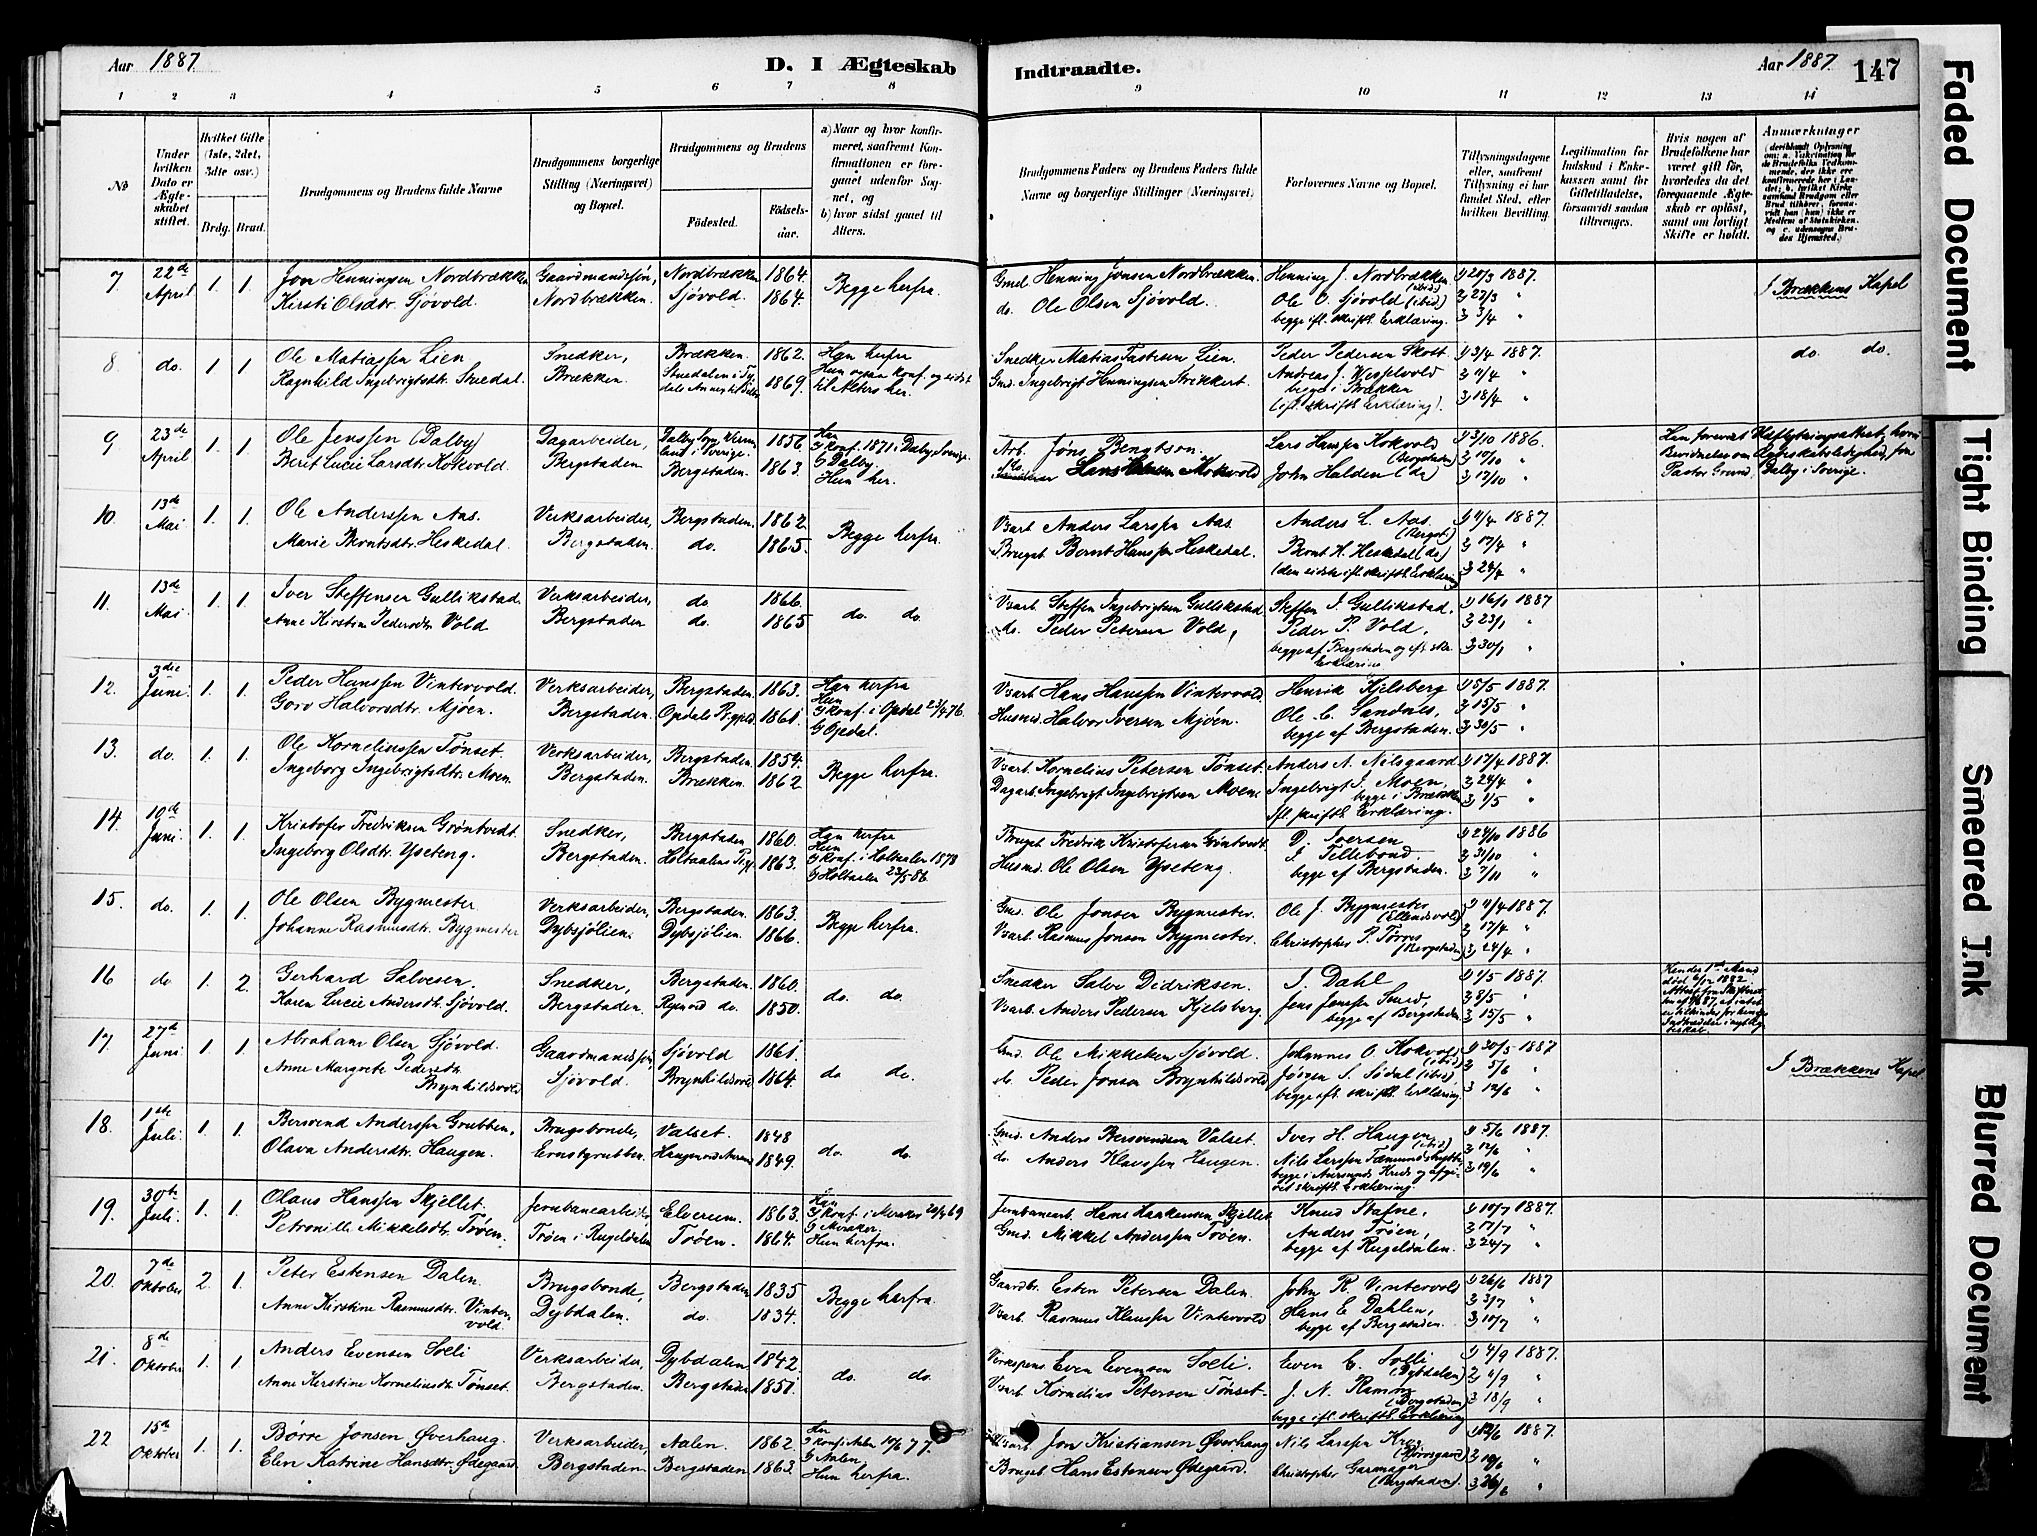 Aar 1887.
D. I Ægteskab
Indtraadte.
Aar 1887.
147
1 2 3 4 5 6 7 8 9 10 11 12 13 14
No
Under hvilken Dato er Ægteskabet stiftet.
Hvilket Gifte (1ste, 2det, 3die osv.)
Brdg. Brud.
Brudgommens og Brudens fulde Navne
Brudgommens borgerlige Stilling (Næringsvei) og Bopæl.
Brudgommens og Brudens
Fødested.
Fødselsaar.
a) Naar og hvor konfirmeret, saafremt Konfirmationen er foregaaet udenfor Sognet, og
b) hvor sidst gaaet til Alters.
Brudgommens Faders og Brudens Faders fulde Navne og borgerlige Stillinger (Næringsvei)
Forlovernes Navne og Bopæl.
Tillysningsdagene eller, saafremt Tillysning ei har fundet Sted, efter hvilken Bevilling.
Legitimation for Indskud i Enkekassen samt for Giftetilladelse, forsaavidt saadan tiltrænges.
Hvis nogen af Brudefolkene har været gift før, hvorledes da det foregaaende Ægteskab er opløst, samt om lovligt Skifte er holdt.
Anmærkninger
7 22de April 1. 1. Jon Henningsen Nordbrækken Gaardmandssøn, Nordbrækken 1864. Begge herfra. Gmd Henning Jonsen Nordbrækken. Henning J. Nordbrækken (ibid) 1) 20/3 1887.
Kirsti Olsdtr. Sjövold. Nordbrækken. Sjövold. 1864. do. Ole Olsen Sjövold. Ole O. Sjövold (ibid) 2) 27/3 "
begge ifl. skriftl. Erklæring. 3 3/4 "
I Brækkens Kapel
8 do. 1 1 Ole Matiassen Lien Snedker, Brækken. 1862. Han herfra Snedker Matias Tastesen Lien. Peder Pedersen Skott 1) 3/4 1887.
Ragnhild Ingebrigtsdtr. Stuedal. Brækken. 1869. Hun ogsaa konf. og sidst til Alters her. Gmd. Ingebrigt Henningsen Andreas J. Wesselvold 3 11/4 "
begge i Brækken (ifl. skriftl. Erklæring). 3 18/4 "
do. do.
9 23de April 1. 1. Ole Jenssen (Dalby) Dagarbeider, 1856. Han a) konf. 1871 i Dalby Sverige. Arb. Jøns Bengtson. Lars Hanssen Kokvold (Bergstaden) 1) 3/10 1886.
Berit Lucie Larsdtr. Kokvold. Bergstaden Bergstaden. 1863. b) Dalby. Hun her. John Halden (do) 3 17/10 "
Pastor Grund, Dalby i Sverige.
10. 13de Mai 1. 1. Ole Anderssen Aas. Verksarbeider, Bergstaden. 1862. Begge herfra. Varb Anders Larssen Aas. Anders L. Aas. 1) 11/4 1887.
Marie Berntsdtr. Heskedal. Bergstaden. do. 1865. Brugsb. Bernt Hanssen Heskedal. Bernt H. Heskedal (do) 3 17/4 "
(den sidste ifl. skriftl. Erklæring) 3 24/4 "
11. 13de Mai 1. 1. Iver Steffensen Gullikstad. Verksarbeider, do. 1866. do. do. Varb. Steffen Ingebrigtsen Gullikstad. Steffen I. Gullikstad. 1) 16/1 1887
Anne Kirstine Pedersdtr Vold Bergstaden do. 1865 do. Peder Petersen Vold, Peder P. Vold, 3 23/1 "
begge af Bergstaden og ifl. skr. Erklæring 3 30/1 "
12. 3die Juni 1. 1. Peder Hanssen Vintervold. Verksarbeider, Bergstaden. 1863. Han herfra Varb Hans Hanssen Vintervold Henrik Kjelsberg 1) 8/5 1887.
Goro Halvorsdtr. Mjøen. Bergstaden. Opdals Prgjeld. 1861. Hun a) konf. i Opdal 23/4 76. b) Opdal. Husmd. Halvor Iversen Mjøen. Ole C. Sandnes, 3 15/5 "
begge af Bergstaden. 3 30/5 "
13. do. 1. 1. Ole Korneliussen Tønset. Verksarbeider, Bergstaden. 1854. Begge herfra. Varb. Kornelius Petersen Tønset. Anders N. Nilsgaard 1) 17/4 1887.
Ingeborg Ingebrigtsdtr. Moen. Bergstaden. Brækken. 1862 Dagarb. Ingebrigt Ingebrigtsen Moen. Ingebrigt I. Moen, begge i Brækken 3 24/4 "
ifl. skriftl. Erklæring. 3 1/5 "
14. 10de Juni. 1. 1. Kristofer Fredriksen Grøntvedt. Snedker, Bergstaden. 1860. Han herfra Brugsb. Fredrik Kristofersen Grøntvedt D. Iversen 1) 24/10 1886
Ingeborg Olsdtr. Ysteteng. Bergstaden. Holtaalens 1863. Hun a) konf. i Holtaalen 1878 b) Holtaalen 23/5 86. Husmd. Ole Olsen Ysteteng. J. Tillebond. 3 31/10 "
begge af Bergstaden. 3 7/11 "
15. do. 1. 1. Ole Olsen Bygmester. Verksarbeider, Bergstaden. 1863. Begge herfra. Gmd. Ole Jonsen Bygmester. Ole J. Bygmester 1) 11/4 1887.
Johanne Rasmusdtr. Bygmester Dybsjölien. Dybsjölien. 1866. Varb. Rasmus Jonsen Bygmester. Christopher P. Tørres (Bergstaden) 3 17/4 " 3 24/4 "
16 do 1. 2. Gerhard Salvesen. Snedker, Bergstaden. 1860. do. do. Snedker Salve Didriksen. J. Dahl 1) 1/5 1887.
Karen Lucie Andersdtr. Sjövold. Bergstaden. do. 1850. Varb. Anders Pedersen Kjelsberg. Jens Jenssen Smed, 3 8/5 "
begge af Bergstaden. 3 15/5 "
Hendes 1ste Mand død 1882.
17. 27de Juni 1. 1. Abraham Olsen Sjövold. Gaardmandssøn, Sjövold 1861. do do. Gmd. Ole Mikkelsen Sjövold. Johannes O. Kokvold (ibid) 1) 30/5 1887
Anne Margrete Pedersdtr. Brynhildsvold Sjövold. Brynhildsvold 1864. do. Peder Jonsen Brynhildsvold Jörgen S. Sødal (ibid) 2 5/6 "
begge ifl. skriftl. Erklæring 3 12/6 "
I Brækkens Kapel
18. 1ste Juli. 1. 1. Bersvend Anderssen Grubben. Brugsbonde, Valset. 1848 do. do. Gmd. Anders Bersvendsen Valset. Iver H. Haugen, (ibid) 1) 5/6 1887.
Olava Andersdtr. Haugen. Ernstgrubben. 1849. do. Anders Klavssen Haugen. Nils Larssen Fæmundshytte, 3 12/6 " 3 19/6 "
19. 30te Juli. 1. 1. Olaus Hanssen Skjellet. Jernbanearbeider Elverum. 1863. Han a) konf. i Meraker b) Meraker. Jernbanearb. Hans Haakensen Skjellet Knud Stafne, 1) 10/7 1887.
Petronille Mikkelsdtr. Trøen. Trøen i Rugeldalen Trøen. 1864. Hun herfra. Gmd. Mikkel Anderssen Trøen. Anders Trøen, 3 17/7 "
begge af Rugeldalen. 3 24/7 "
20. 7de Oktober 2. 1. Peter Estensen Dalen. Brugsbonde, Bergstaden 1835 Begge herfra. Gaardbr. Esten Petersen Dalen. John R. Vintervold 1) 26/6 1887
Anne Kirstine Rasmusdtr. Vintervold. Dybdalen. do. 1834. Varb. Rasmus Klaussen Vintervold Hans E Dahlen, 3 3/7 "
begge af Bergstaden. 3 10/7 "
21. 8de Oktober 1. 1. Anders Evensen Solli Verksarbeider, Dybdalen. 1842. do. do. Even Evensen Solli. Even E. Solli (Dybdalen) 1) 4/9 1887.
Anne Kirstine Kornelius­dtr. Tønset. Bergstaden. Bergstaden 1851. Varb. Kornelius Petersen Tønset. J. N. Ramm (Bergstaden) 2 11/9 " 3 18/9 "
begge ifl. skriftl. Erklæring
22 15de Oktober 1. 1. Børre Jonsen Øverhaug. Verksarbeider, Aalen. 1862. Han a) konf. i Aalen 10/6 77. b) Aalen. Varb. Jon Kristiansen Øverhaug Nils Larssen Krog 1) 12/6 1887.
Elen Katrine Hansdtr. Ødegaard. Bergstaden. Bergstaden. 1863. Hun herfra. Brugsb. Hans Estensen Ødegaard. Christopher Garmager (Bergstaden). 2 19/6 " 3 26/6 "
Faded Document
Tight Binding
Smeared Ink
Blurred Document